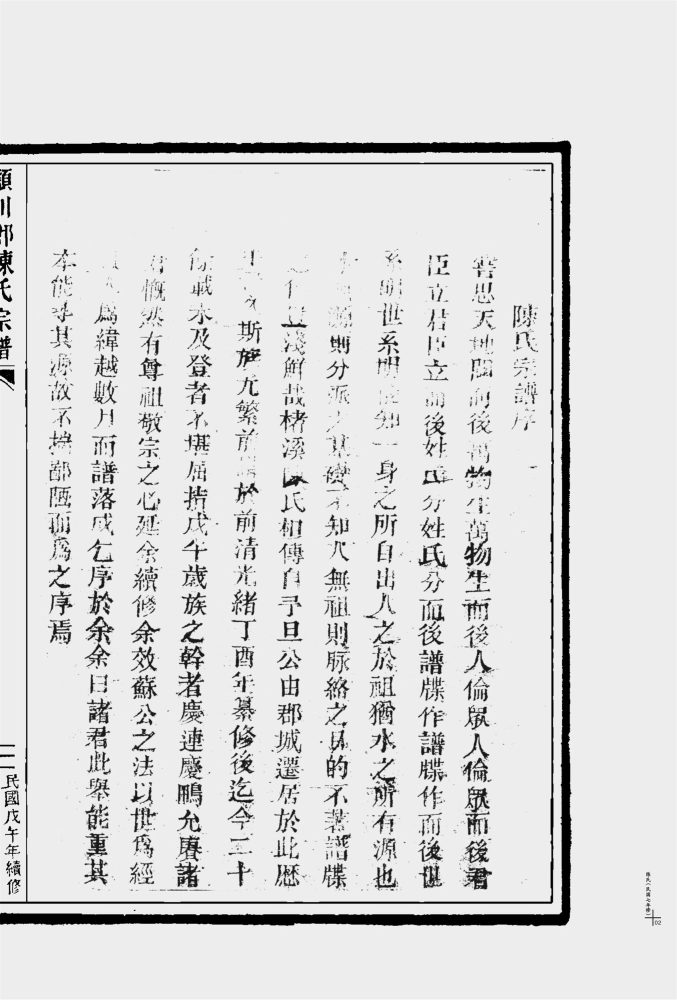 陳氏宗譜序
嘗思天地闢而後萬物生萬物生而後人倫眾人倫眾而後君
臣立君臣立而後姓氏分姓氏分而後譜牒作譜牒作而後世
系明世系明世知一身之所自出人之於祖猶水之所有源也
源則分派之甚不知人無祖則脉絡之具的不著譜牒
淺鮮哉楮溪陳氏相傳自予旦公由郡城遷居於此歷
斯族尤繁前譜於前清光緒丁酉年纂修後迄今二十
餘載未及登者不堪屈指戊午歲族之幹者慶連慶鵰允賡諸
君慨然有尊祖敬宗之心延余續修余效蘇公之法以世爲經
爲緯越數月而譜落成乞序於余余曰諸君此舉能重其
本能尋其源故不揣鄙陋而爲之序焉
潁川郡陳氏宗譜
民國戊午年續修
陳氏(民國七年修)
02